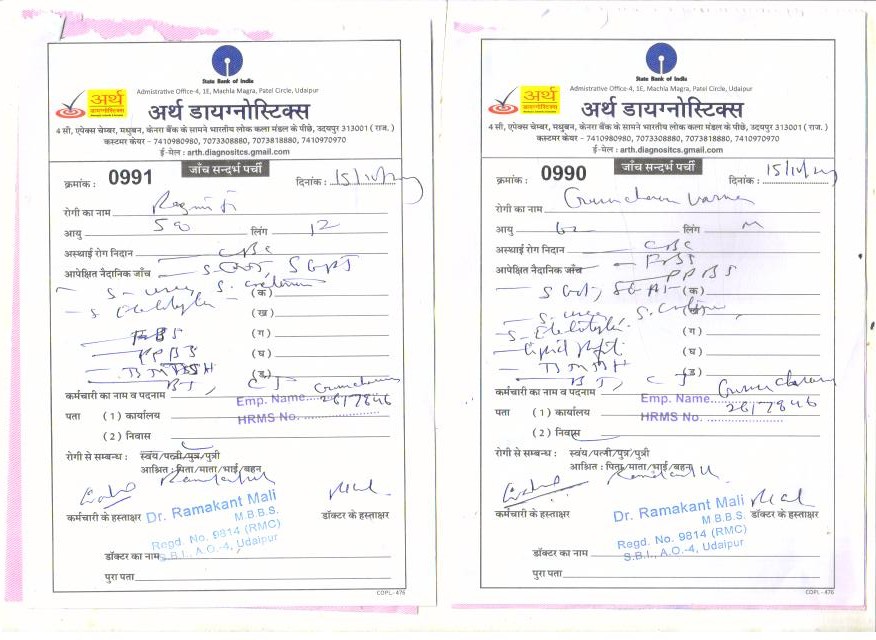 State Bank of India
Admistrative Office-4, 1E, Machla Magra, Patel Circle, Udaipur
अर्थ
डायग्नोस्टिक्स
अर्थ डायग्नोस्टिक्स
4 सी, एपेक्स चेम्बर, मधुबन, केनरा बैंक के सामने भारतीय लोक कला मंडल के पीछे, उदयपुर 313001 ( राज. )
कस्टमर केयर - 7410980980, 7073308880, 7073818880, 7410970970
ई-मेल : arth.diagnositcs.gmail.com
जाँच सन्दर्भ पर्ची
क्रमांक : 0991 दिनांक : 15/10/
रोगी का नाम
आयु 50 लिंग
अस्थाई रोग निदान CBC
आपेक्षित नैदानिक जाँच S. SGPT
S. S. (क)
S. (ख)
FBS (ग)
PPBS (घ)
(ड)
BT, CT
कर्मचारी का नाम व पदनाम
Emp. Name 2617846
पता ( 1 ) कार्यालय HRMS No.
( 2 ) निवास
रोगी से सम्बन्ध : स्वयं/पत्नी/पुत्र/पुत्री
आश्रित : पिता/माता/भाई/बहन
कर्मचारी के हस्ताक्षर डॉक्टर के हस्ताक्षर
Dr. Ramakant Mali
M.B.B.S.
Regd. No. 9814 (RMC)
S.B.I., A.O.-4, Udaipur
डॉक्टर का नाम
पुरा पता
COPL - 476
State Bank of India
Admistrative Office-4, 1E, Machla Magra, Patel Circle, Udaipur
अर्थ
डायग्नोस्टिक्स
अर्थ डायग्नोस्टिक्स
4 सी, एपेक्स चेम्बर, मधुबन, केनरा बैंक के सामने भारतीय लोक कला मंडल के पीछे, उदयपुर 313001 ( राज. )
कस्टमर केयर - 7410980980, 7073308880, 7073818880, 7410970970
ई-मेल : arth.diagnositcs.gmail.com
जाँच सन्दर्भ पर्ची
क्रमांक : 0990 दिनांक : 15/10/
रोगी का नाम
आयु 62 लिंग M
अस्थाई रोग निदान CBC
आपेक्षित नैदानिक जाँच FBS
PPBS
S SGPT (क)
S. S.
S. (ग)
Lipid (घ)
(ड)
BT, CT
कर्मचारी का नाम व पदनाम
Emp. Name 2617846
पता ( 1 ) कार्यालय HRMS No.
( 2 ) निवास
रोगी से सम्बन्ध : स्वयं/पत्नी/पुत्र/पुत्री
आश्रित : पिता/माता/भाई/बहन
कर्मचारी के हस्ताक्षर डॉक्टर के हस्ताक्षर
Dr. Ramakant Mali
M.B.B.S.
Regd. No. 9814 (RMC)
S.B.I., A.O.-4, Udaipur
डॉक्टर का नाम
पुरा पता
COPL - 476